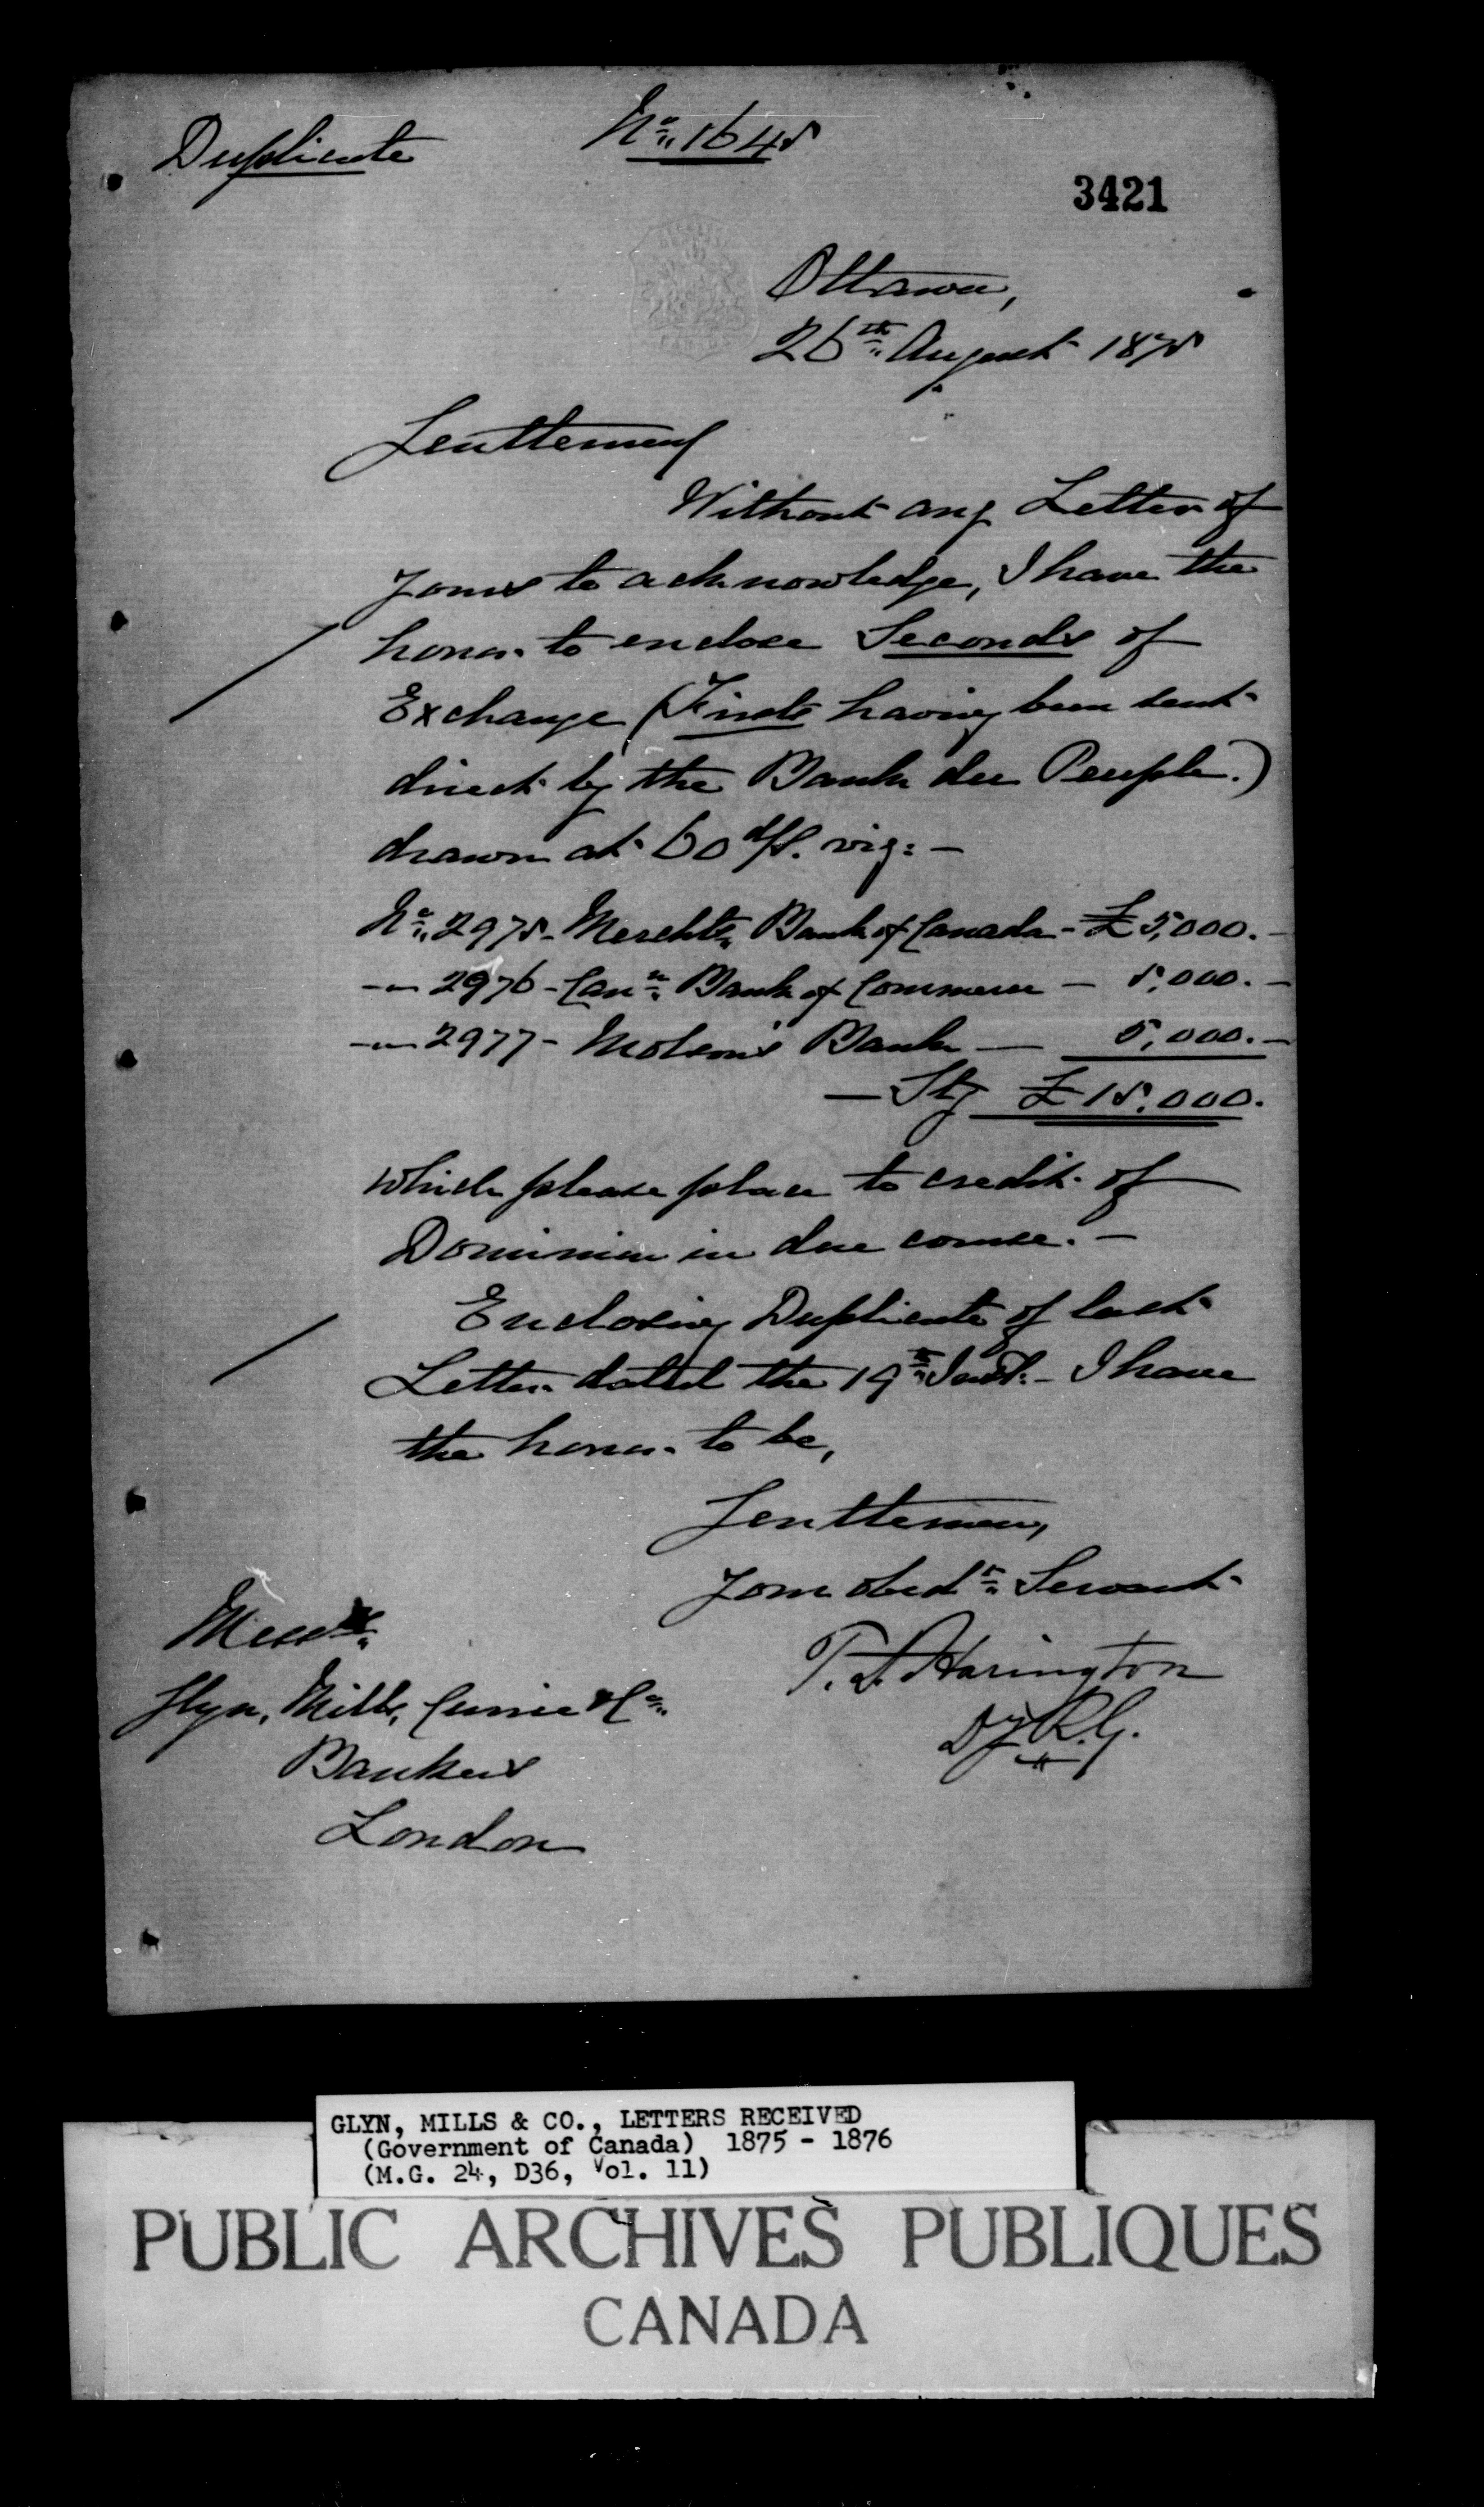 Duplicate
No. 1645
3421
Ottawa,
26th August 1875
Gentlemen
Without any Letter of
yours to acknowledge, I have the
honor to enclose Seconds of
Exchange (Firsts having been sent
direct by the Bank du Peuple.)
drawn at 60 d/s. viz: -
No. 2975 - Merchts Bank of Canada - £5,000. -
-"- 2976 - Cann Bank of Commerce - 5,000. -
-"- 2977 - Molson's Bank - 5,000. -
- Stg £15,000.
which please place to credit of
Dominion in due course. -
Enclosing Duplicate of last
Letter dated the 19th Inst. - I have
the honor to be,
Gentlemen,
Your obedt Servant
T. D. Harington
Dy R. G.
Messrs
Glyn, Mills, Currie & Co.
Bankers
London
GLYN, MILLS & CO., LETTERS RECEIVED
(Government of Canada) 1875 - 1876
(M.G. 24, D36, Vol. 11)
PUBLIC ARCHIVES PUBLIQUES
CANADA